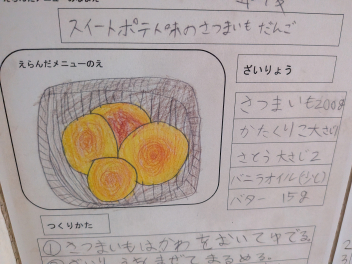 スイートポテト味のさつまいもだんご
えらんだメニューのえ
ざいりょう
さつまいも200g
かたくりこ大さじ
さとう 大さじ2
バニラオイル(少し)
バター 15g
つくりかた
①さつまいもはかわをむいてゆでる。
まぜて まるめる。